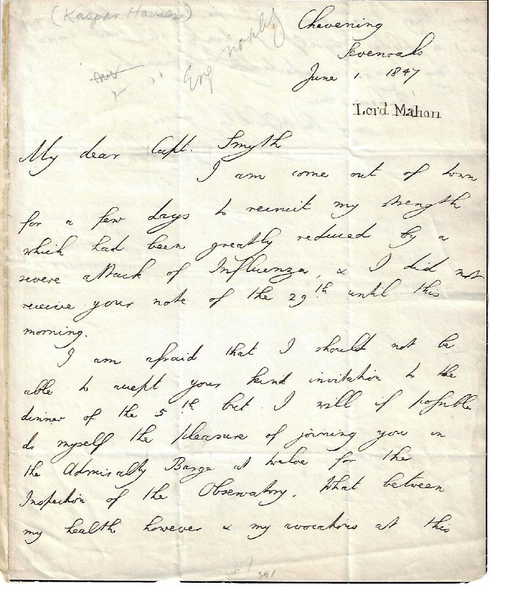 (Kaspar Hauser)
Eng nobly
Chevening
Sevenoaks
June 1. 1847
Lord Mahon
My dear Capt. Smyth
I am come out of town
for a few days to recruit my strength
which had been greatly reduced by a
severe attack of Influenza, & I did not
receive your note of the 29th until this
morning.
I am afraid that I should not be
able to accept your kind invitation to the
dinner of the 5th but I will if possible
do myself the pleasure of joining you in
the Admiralty Barge at twelve for the
Inspection of the Observatory. What between
my health however & my avocations at this